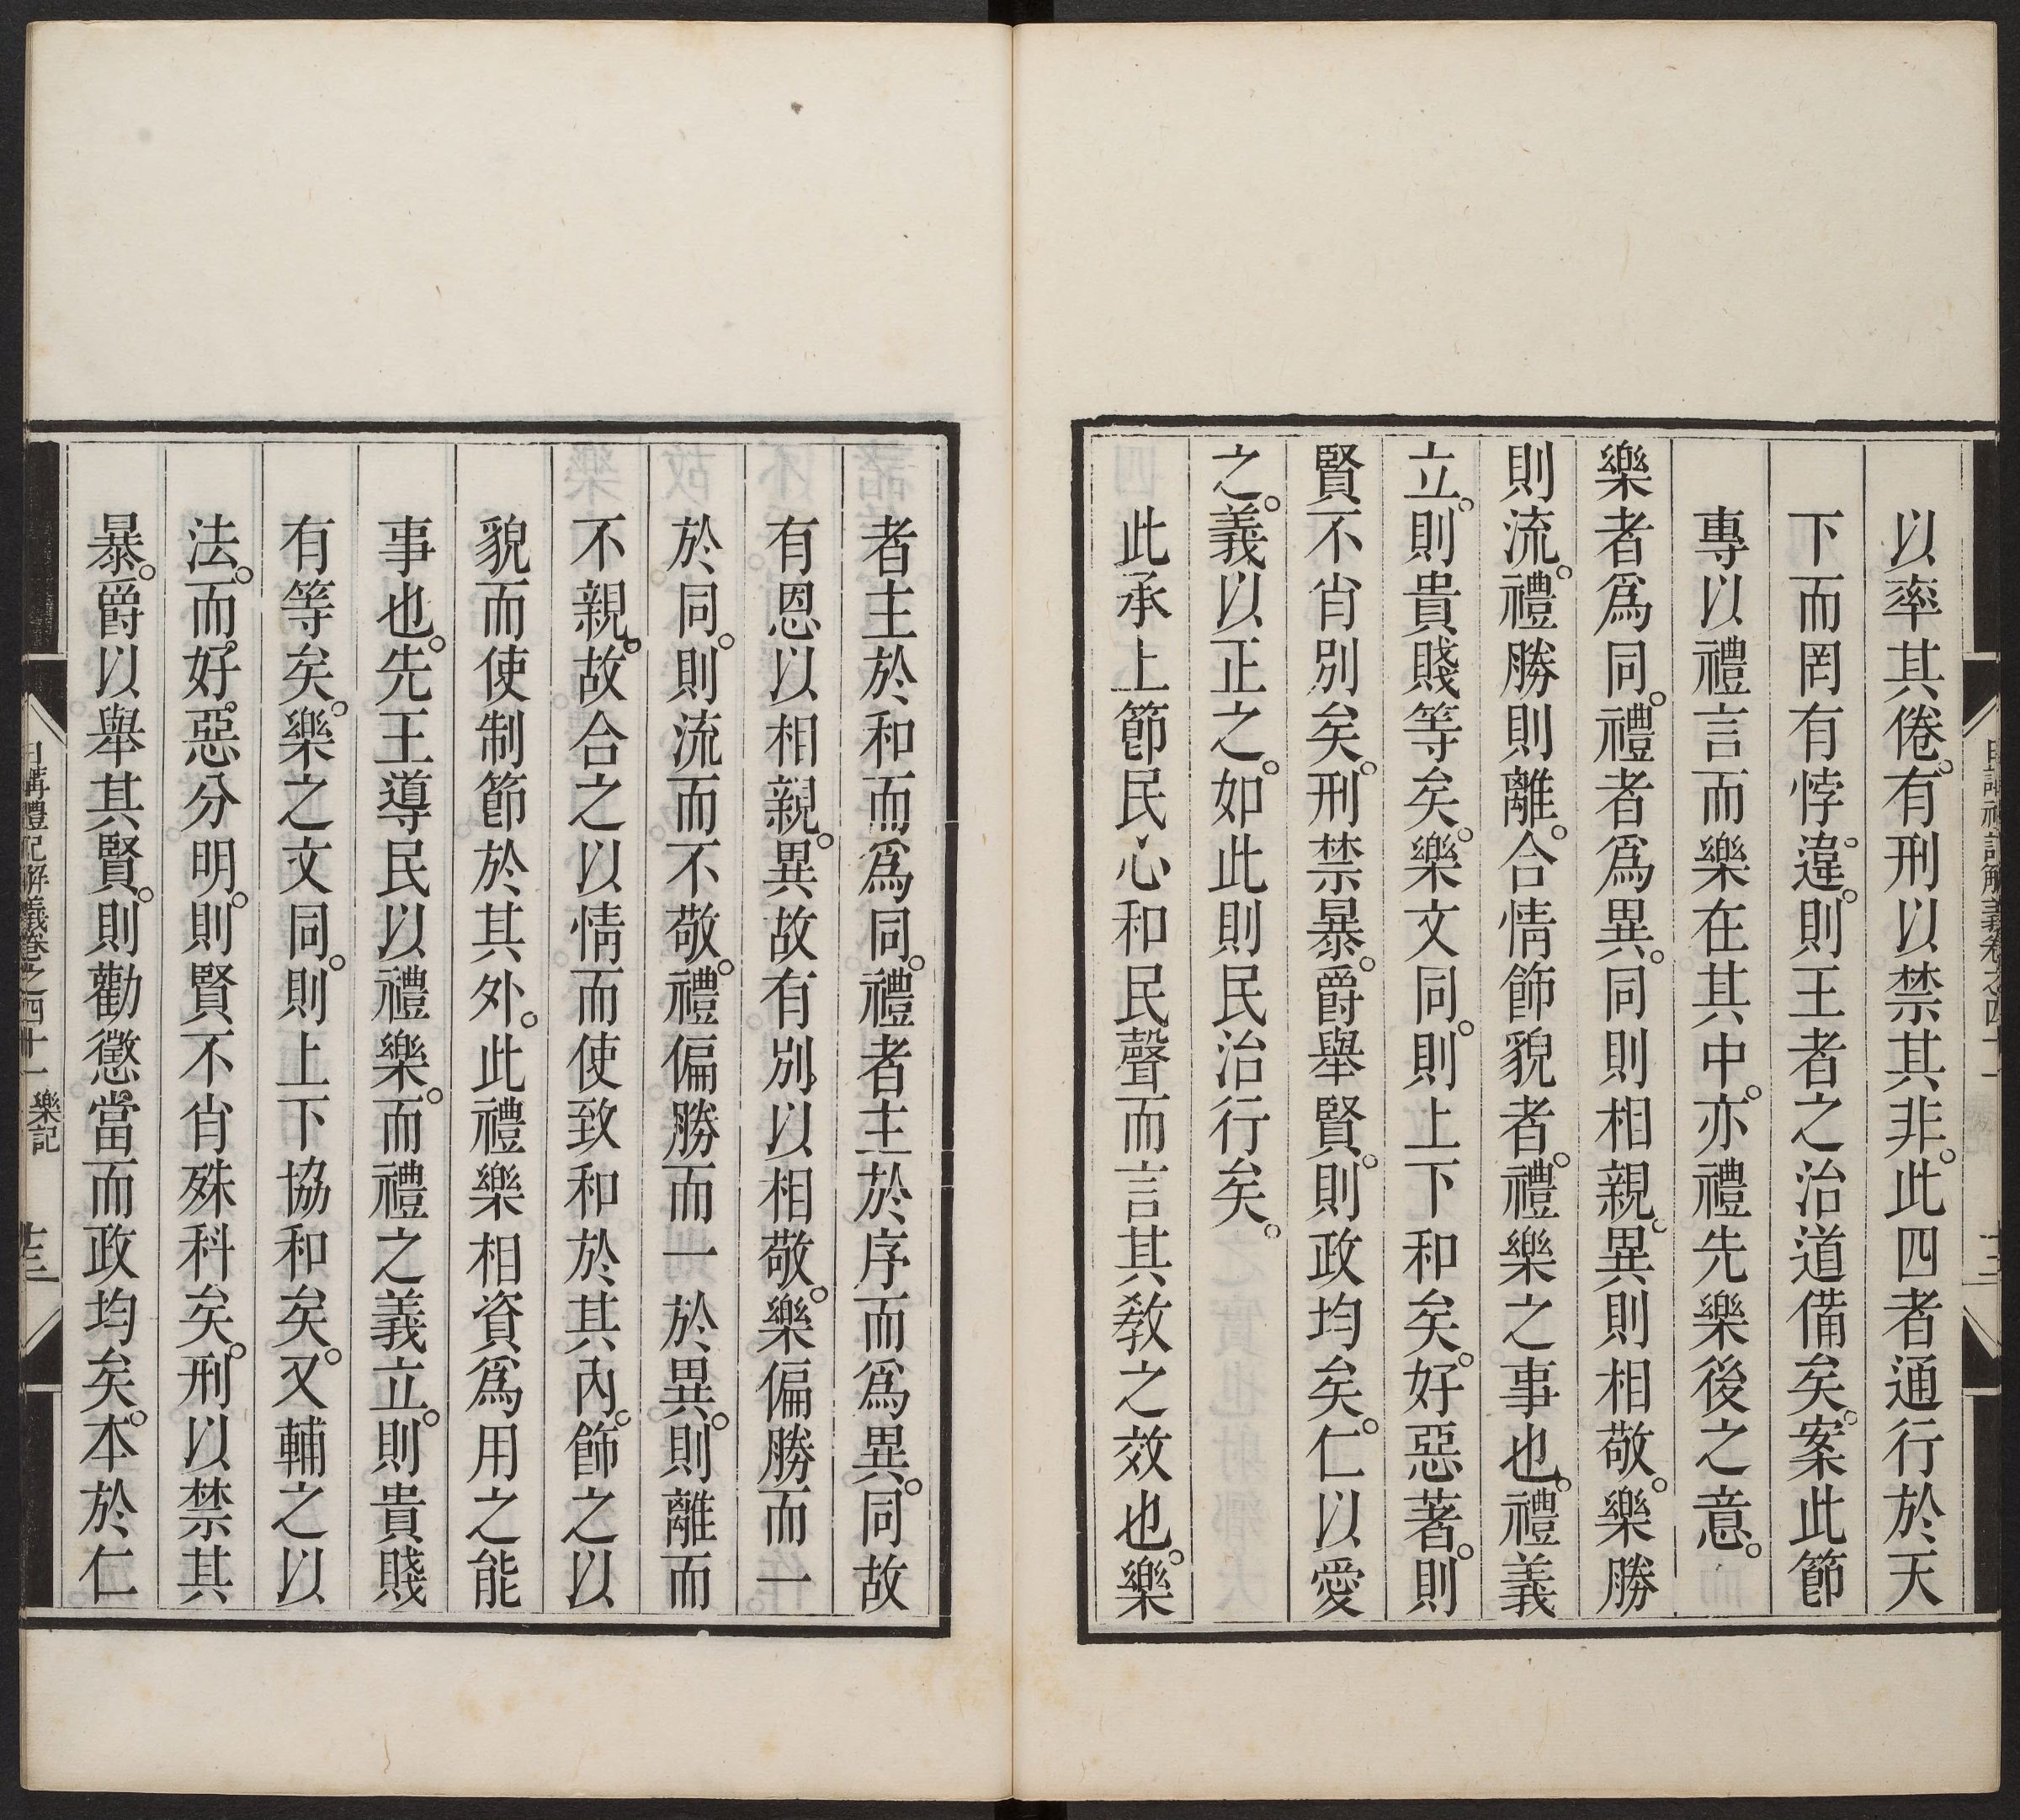 以率其倦。有刑以禁其非。此四者通行於天
下而罔有悖違。則王者之治道備矣。案此節
專以禮言而樂在其中。亦禮先樂後之意。
樂者爲同。禮者爲異。同則相親。異則相敬。樂勝
則流。禮勝則離。合情飾貌者。禮樂之事也。禮義
立。則貴賤等矣。樂文同。則上下和矣。好惡著。則
賢不肖別矣。刑禁暴。爵舉賢。則政均矣。仁以愛
之。義以正之。如此則民治行矣。
此承上節民心和民聲而言其敎之效也。樂
者主於和而爲同。禮者主於序而爲異。同故
有恩以相親。異故有別以相敬。樂偏勝而一
於同。則流而不敬。禮偏勝而一於異。則離而
不親。故合之以情而使致和於其內。飾之以
貌而使制節於其外。此禮樂相資爲用之能
事也。先王導民以禮樂。而禮之義立。則貴賤
有等矣。樂之文同。則上下協和矣。又輔之以
法。而好惡分明。則賢不肖殊科矣。刑以禁其
暴。爵以舉其賢。則勸懲當而政均矣。本於仁
日講禮記解義卷之四十一 樂記 十三